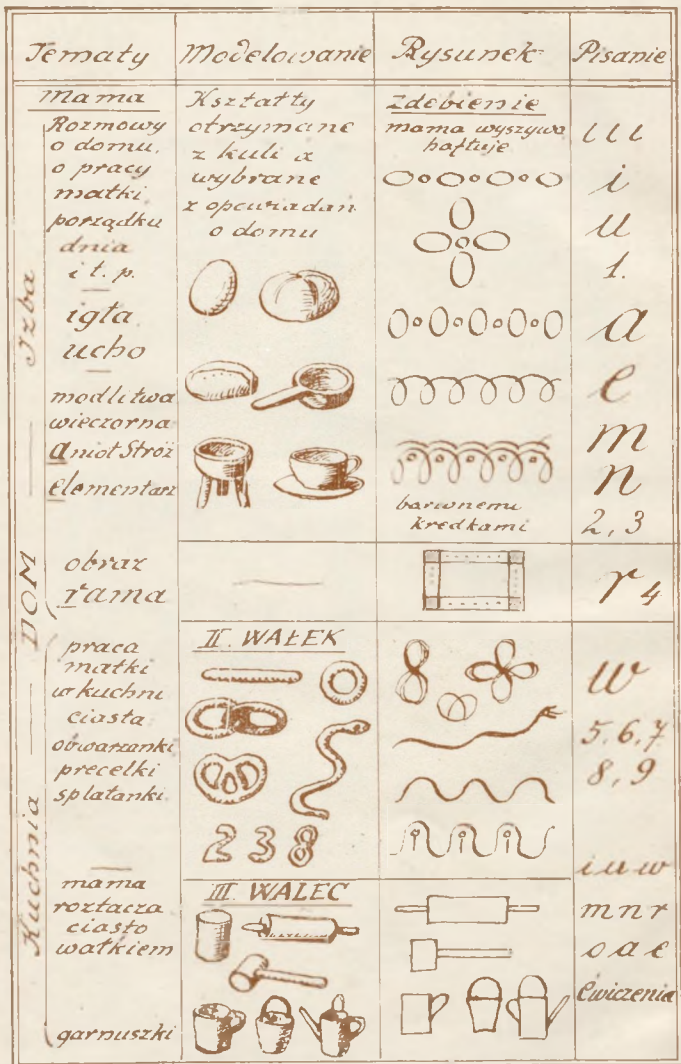 Tematy
Modelowanie
Rysunek
Pisanie
DOM
Izba
Mama
Rozmowy
o domu,
o pracy
matki
porządku
dnia
i t. p.
igła
ucho
modlitwa
wieczorna
anioł Stróż
elementarz
obraz
rama
Kształty
otrzymane
z kuli a
wybrane
z opowiadań
o domu
Zdobienie
mama wyszywa
haftuje
barwnemi
kredkami
ııı
i
u
1.
a
e
m
n
2, 3
r 4
Kuchnia
praca
matki
w kuchni
ciasta
obwarzanki
precelki
splatanki
II. WAŁEK
2 3 8
w
5. 6, 7
8, 9
i u w
mama
roztacza
ciasto
wałkiem
garnuszki
III. WALEC
m n r
o a e
Ćwiczenia